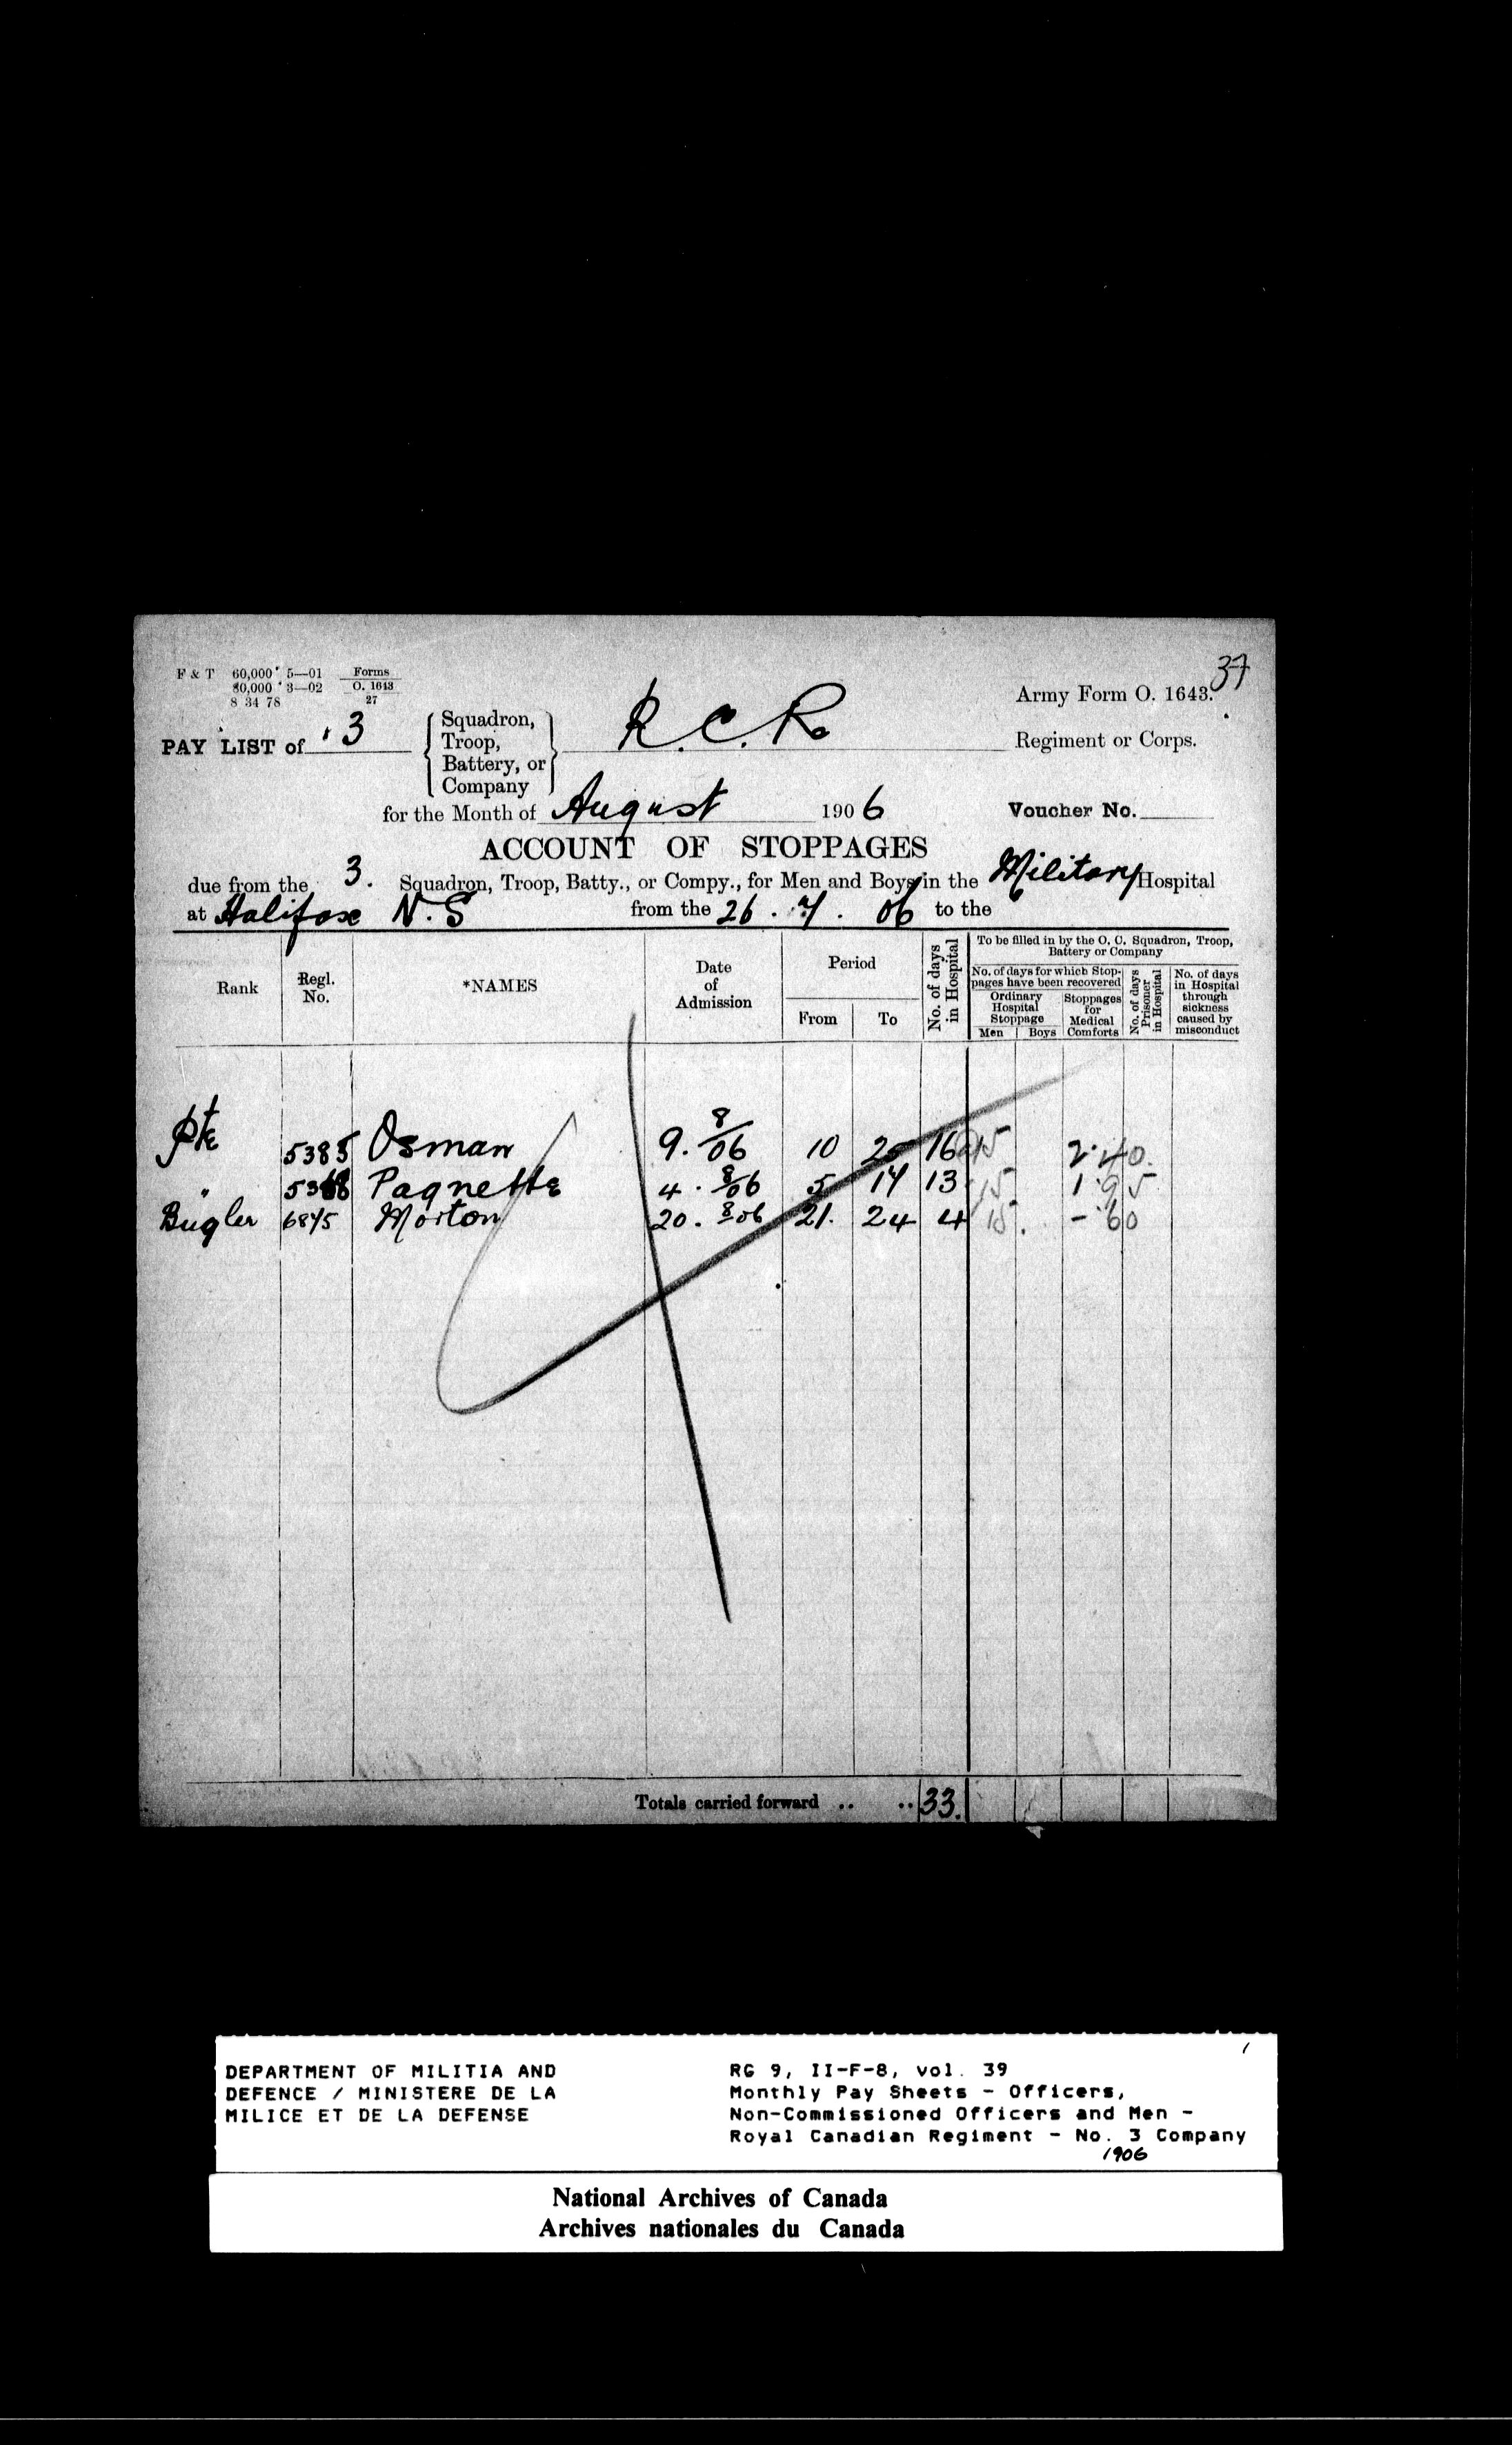 37
F & T 60,000 5—01 Forms
80,000 3—02 O. 1643
8 34 78 27
Army Form O. 1643.
PAY LIST of 3 Squadron, Troop, Battery, or Company R. C. R. Regiment or Corps.
for the Month of August 1906 Voucher No.
ACCOUNT OF STOPPAGES
due from the 3. Squadron, Troop, Batty., or Compy., for Men and Boys in the Military Hospital
at Halifax N. S from the 26 . 7 . 06 to the
To be filled in by the O. C. Squadron, Troop, Battery or Company
Rank Regl. No. *NAMES Date of Admission Period From To No. of days in Hospital No. of days for which Stoppages have been recovered Ordinary Hospital Stoppage Men Boys Stoppages for Medical Comforts No. of days Prisoner in Hospital No. of days in Hospital through sickness caused by misconduct
Pte 5385 Osman 9. 8/06 10 25 16 @15 2.40.
" Paquette 4 . 8/06 5 17 13 15 1.95
Bugler 6845 Morton 20 . 8/06 21. 24 4 15. - .60
Totals carried forward .. .. 33.
DEPARTMENT OF MILITIA AND
DEFENCE / MINISTERE DE LA
MILICE ET DE LA DEFENSE
RG 9, II-F-8, vol. 39
Monthly Pay Sheets - Officers,
Non-Commissioned Officers and Men -
Royal Canadian Regiment - No. 3 Company
1906
National Archives of Canada
Archives nationales du Canada